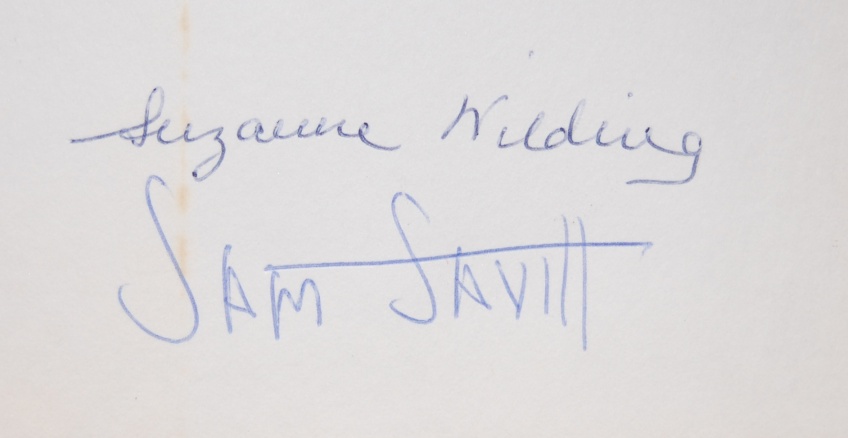 Suzanne Wilding
SAM SAVITT